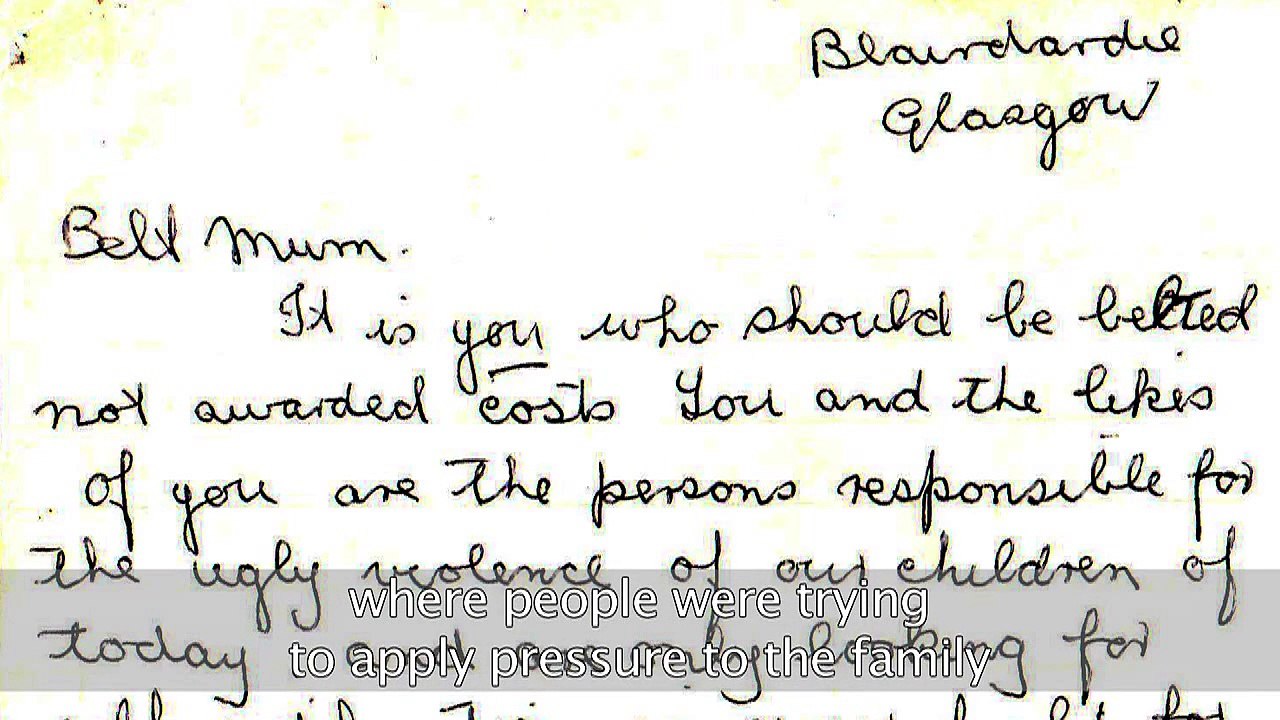 Blairdardie
Glasgow
Belt Mum.
It is you who should be belted
not awarded costs You and the likes
of you are the persons responsible for
the ugly violence of our children of
today and are only looking for
where people were trying
to apply pressure to the family